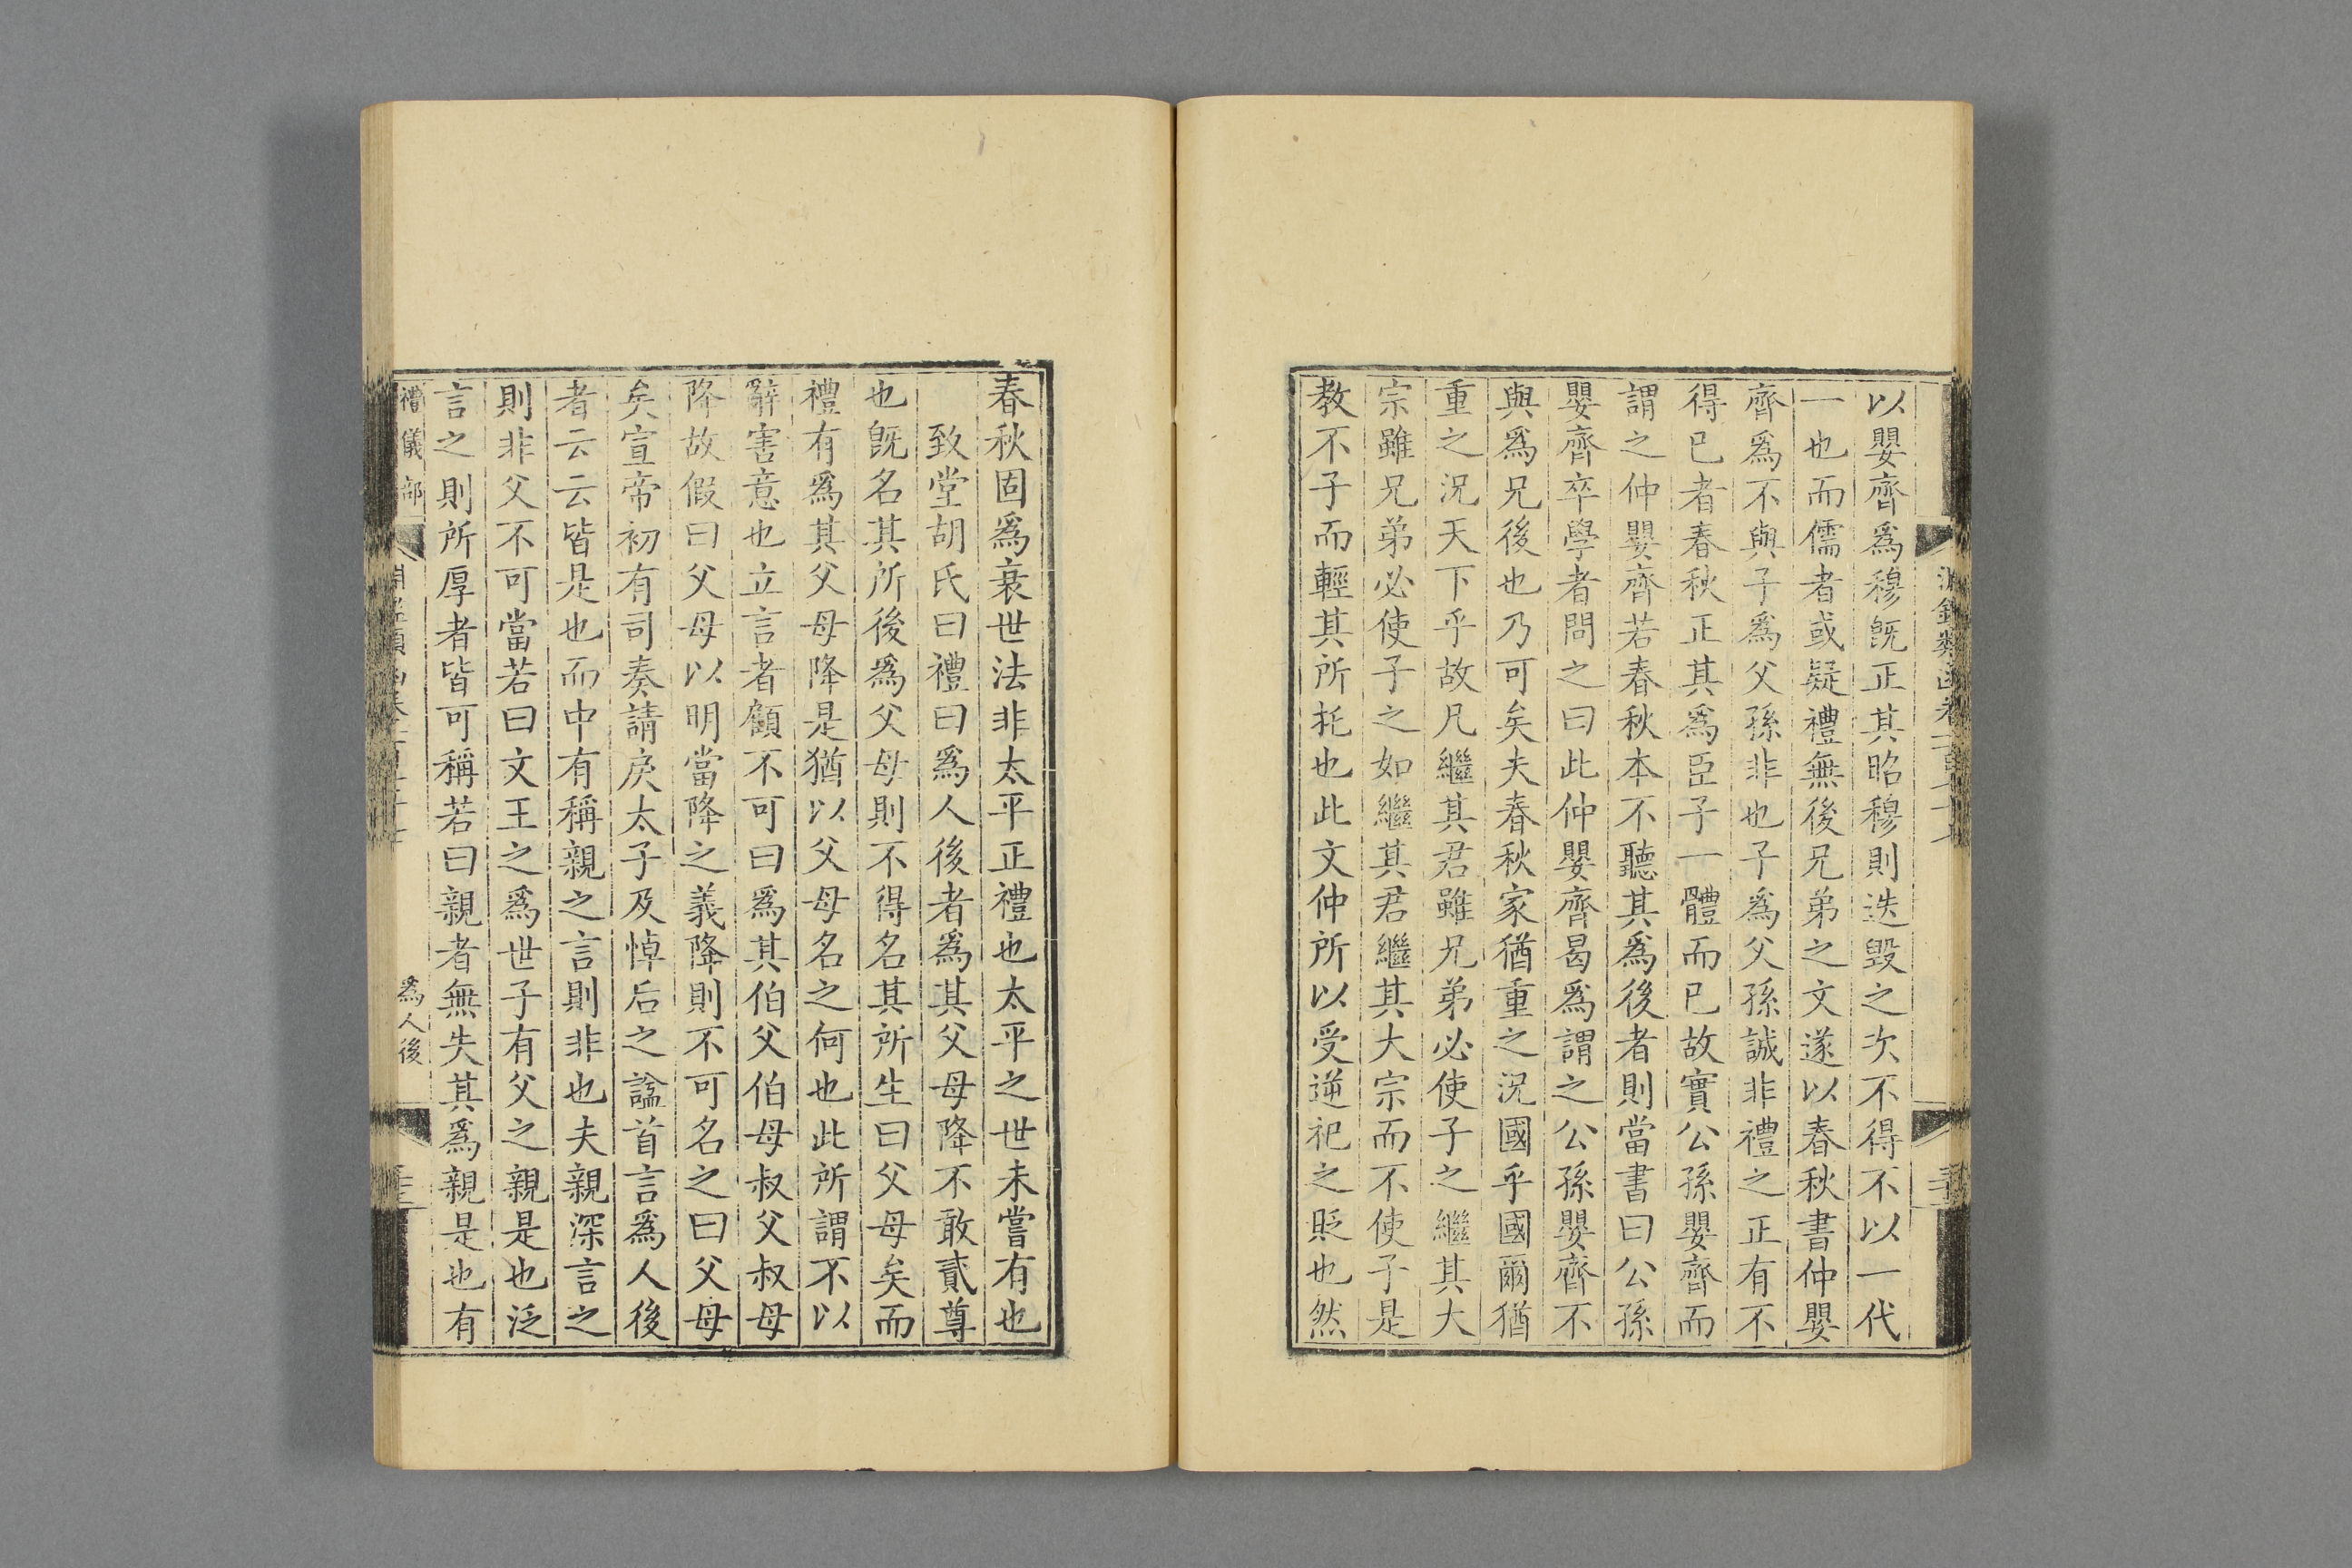 以嬰齊爲穆旣正其昭穆則迭毀之次不得不以一代
一也而儒者或疑禮無後兄弟之文遂以春秋書仲嬰
齊爲不與子爲父孫非也子爲父孫誠非禮之正有不
得已者春秋正其爲臣子一體而已故實公孫嬰齊而
謂之仲嬰齊若春秋本不聽其爲後者則當書曰公孫
嬰齊卒學者問之曰此仲嬰齊曷爲謂之公孫嬰齊不
與爲兄後也乃可矣夫春秋家猶重之況國乎國爾猶
重之況天下乎故凡繼其君雖兄弟必使子之繼其大
宗雖兄弟必使子之如繼其君繼其大宗而不使子是
教不子而輕其所托也此文仲所以受逆祀之貶也然
春秋固爲衰世法非太平正禮也太平之世未嘗有也
致堂胡氏曰禮曰爲人後者爲其父母降不敢貳尊
也旣名其所後爲父母則不得名其所生曰父母矣而
禮有爲其父母降是猶以父母名之何也此所謂不以
辭害意也立言者顧不可曰爲其伯父伯母叔父叔母
降故假曰父母以明當降之義降則不可名之曰父母
矣宣帝初有司奏請戾太子及悼后之諡首言爲人後
者云云皆是也而中有稱親之言則非也夫親深言之
則非父不可當若曰文王之爲世子有父之親是也泛
言之則所厚者皆可稱若曰親者無失其爲親是也有
禮儀部
爲人後